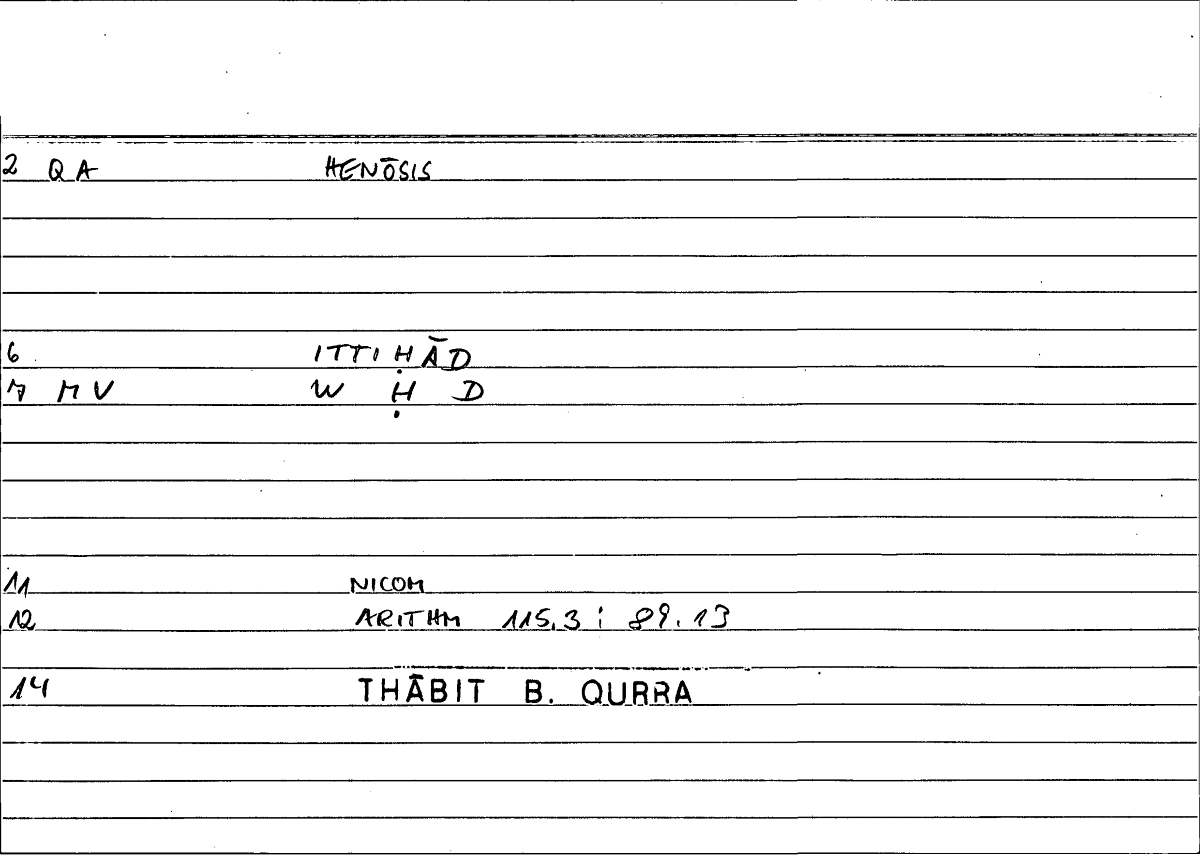 2 QA HENŌSIS
6 ITTIḤĀD
7 MV W Ḥ D
11 NICOM
12 ARITHM 115.3 ; 89.13
14 THĀBIT B. QURRA